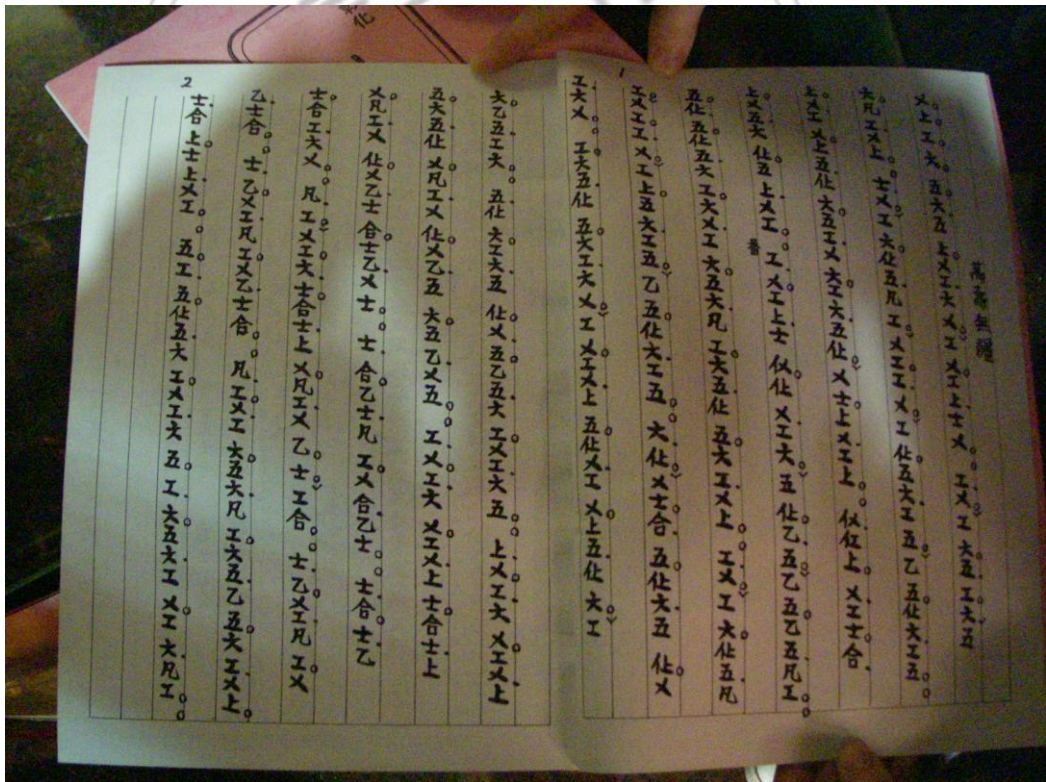 萬壽無疆
乂上工六 五六五 上乂工六 乂工 乂工上士乂 工乂工 六五 工六五
六凡工乂上 士乂工 六仩五凡工 乂工工 乂工 仩五六工 五乙 五仩六工五
上乂工 乂上五仩 六五工乂 六工六五仩 乂士上乂工上 伬仜上 乂工士合
上乂五六 仩五 上乂工 工乂工上士 伬仩 乂工六五 仩乙五乙五乙五凡工
五仩 五仩五六 工六乂工 六五六凡 工六五仩 五六工乂上 工乂工 六仩五凡
工乂工工 乂工上五六工五 乙五仩六工五 六仩乂士合 五仩六五 仩乂
工六乂 工六五仩 五六工六乂工 乂工乂上 五仩乂工 乂上五仩 六工
1
六乙五工六 五仩 六工六五 仩乂 五乙五六 工乂工六五 上乂工六 乂工乂上
五六五仩 乂凡工乂 仩乂乙五 六五乙乂五 工乂工六 乂工乂上 士合士上
乂凡工乂 仩乂乙士 合士乙乂士 士合乙士凡 工乂合乙士 士合士乙
士合 工六乂 凡工乂工六士合士上 乂凡工乂 乙士工合 士乙乂工凡 工乂
乙士合 士乙乂工凡工乂乙士合 凡工乂工 六五六凡 工六五乙五六 工乂上
士合 上士上乂工 五工 五仩五六 工乂工六 五工 六五六工 乂工 六凡工
2